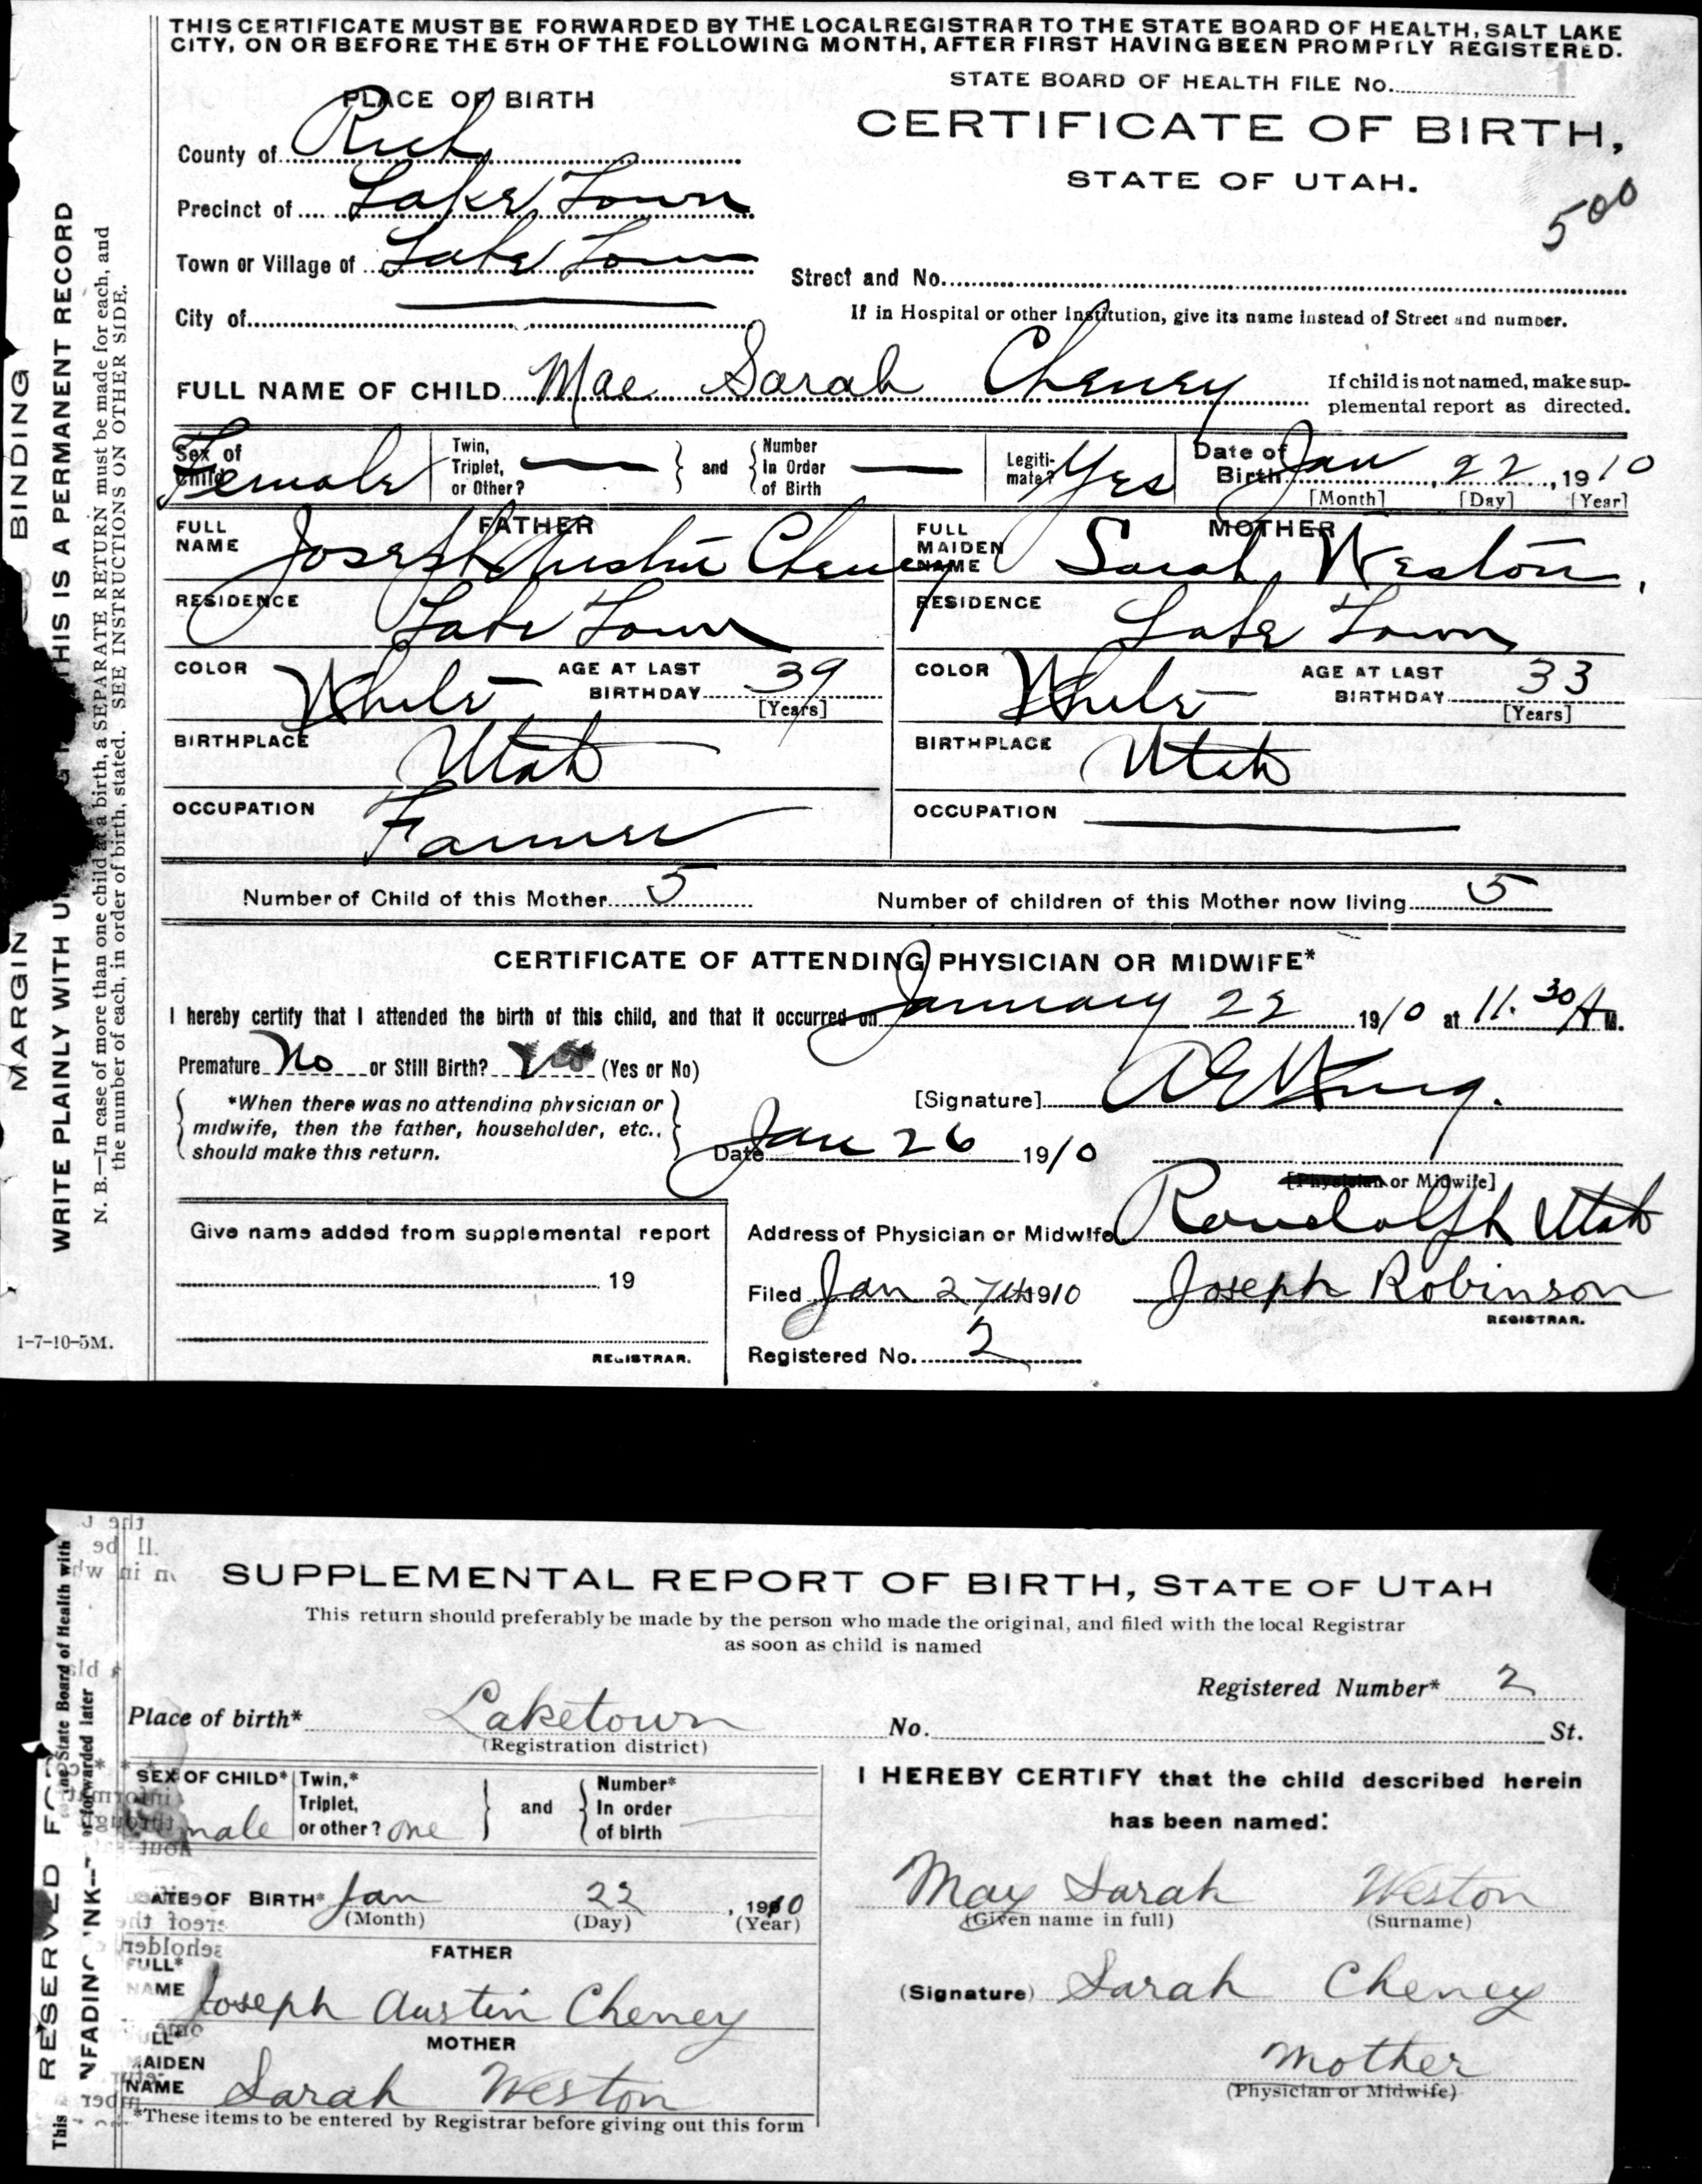 THIS CERTIFICATE MUST BE FORWARDED BY THE LOCAL REGISTRAR TO THE STATE BOARD OF HEALTH, SALT LAKE
CITY, ON OR BEFORE THE 5TH OF THE FOLLOWING MONTH, AFTER FIRST HAVING BEEN PROMPTLY REGISTERED.
STATE BOARD OF HEALTH FILE No.
PLACE OF BIRTH
CERTIFICATE OF BIRTH,
STATE OF UTAH.
500
County of Rich
Precinct of Lake Town
Town or Village of Lake Town
City of
Street and No.
If in Hospital or other Institution, give its name instead of Street and number.
FULL NAME OF CHILD Mae Sarah Cheney
If child is not named, make sup-
plemental report as directed.
Sex of Child Female
Twin, Triplet, or Other?
and
Number In Order of Birth
Legiti-mate? Yes
Date of Birth Jan 22, 1910
[Month] [Day] [Year]
FATHER
FULL NAME Joseph Austin Cheney
RESIDENCE Lake Town
COLOR White
AGE AT LAST BIRTHDAY 39
[Years]
BIRTHPLACE Utah
OCCUPATION Farmer
MOTHER
FULL MAIDEN NAME Sarah Weston,
RESIDENCE Lake Town
COLOR White
AGE AT LAST BIRTHDAY 33
[Years]
BIRTHPLACE Utah
OCCUPATION
Number of Child of this Mother 5
Number of children of this Mother now living 5
CERTIFICATE OF ATTENDING PHYSICIAN OR MIDWIFE*
I hereby certify that I attended the birth of this child, and that it occurred on January 22 1910 at 11.30 A M.
Premature No or Still Birth? (Yes or No)
*When there was no attending physician or
midwife, then the father, householder, etc.,
should make this return.
[Signature]
Date Jan 26 1910
[Physician or Midwife]
Give name added from supplemental report
19
REGISTRAR.
Address of Physician or Midwife Randolph Utah
Filed Jan 27th 1910 Joseph Robinson
REGISTRAR.
Registered No. 2
MARGIN
BINDING
WRITE PLAINLY WITH
THIS IS A PERMANENT RECORD
N. B.—In case of more than one child at a birth, a SEPARATE RETURN must be made for each, and
the number of each, in order of birth, stated. SEE INSTRUCTIONS ON OTHER SIDE.
1-7-10-5M.
SUPPLEMENTAL REPORT OF BIRTH, STATE OF UTAH
This return should preferably be made by the person who made the original, and filed with the local Registrar
as soon as child is named
Registered Number* 2
Place of birth* Laketown No. St.
(Registration district)
SEX OF CHILD* male
Twin,* Triplet, or other? one
and
Number* In order of birth
DATE OF BIRTH* Jan 22, 1910
(Month) (Day) (Year)
FATHER
FULL* NAME Joseph Austin Cheney
MOTHER
MAIDEN NAME Sarah Weston
*These items to be entered by Registrar before giving out this form
I HEREBY CERTIFY that the child described herein
has been named:
May Sarah Weston
(Given name in full) (Surname)
(Signature) Sarah Cheney
Mother
(Physician or Midwife)
This
RESERVED
State Board of Health with
or forwarded later